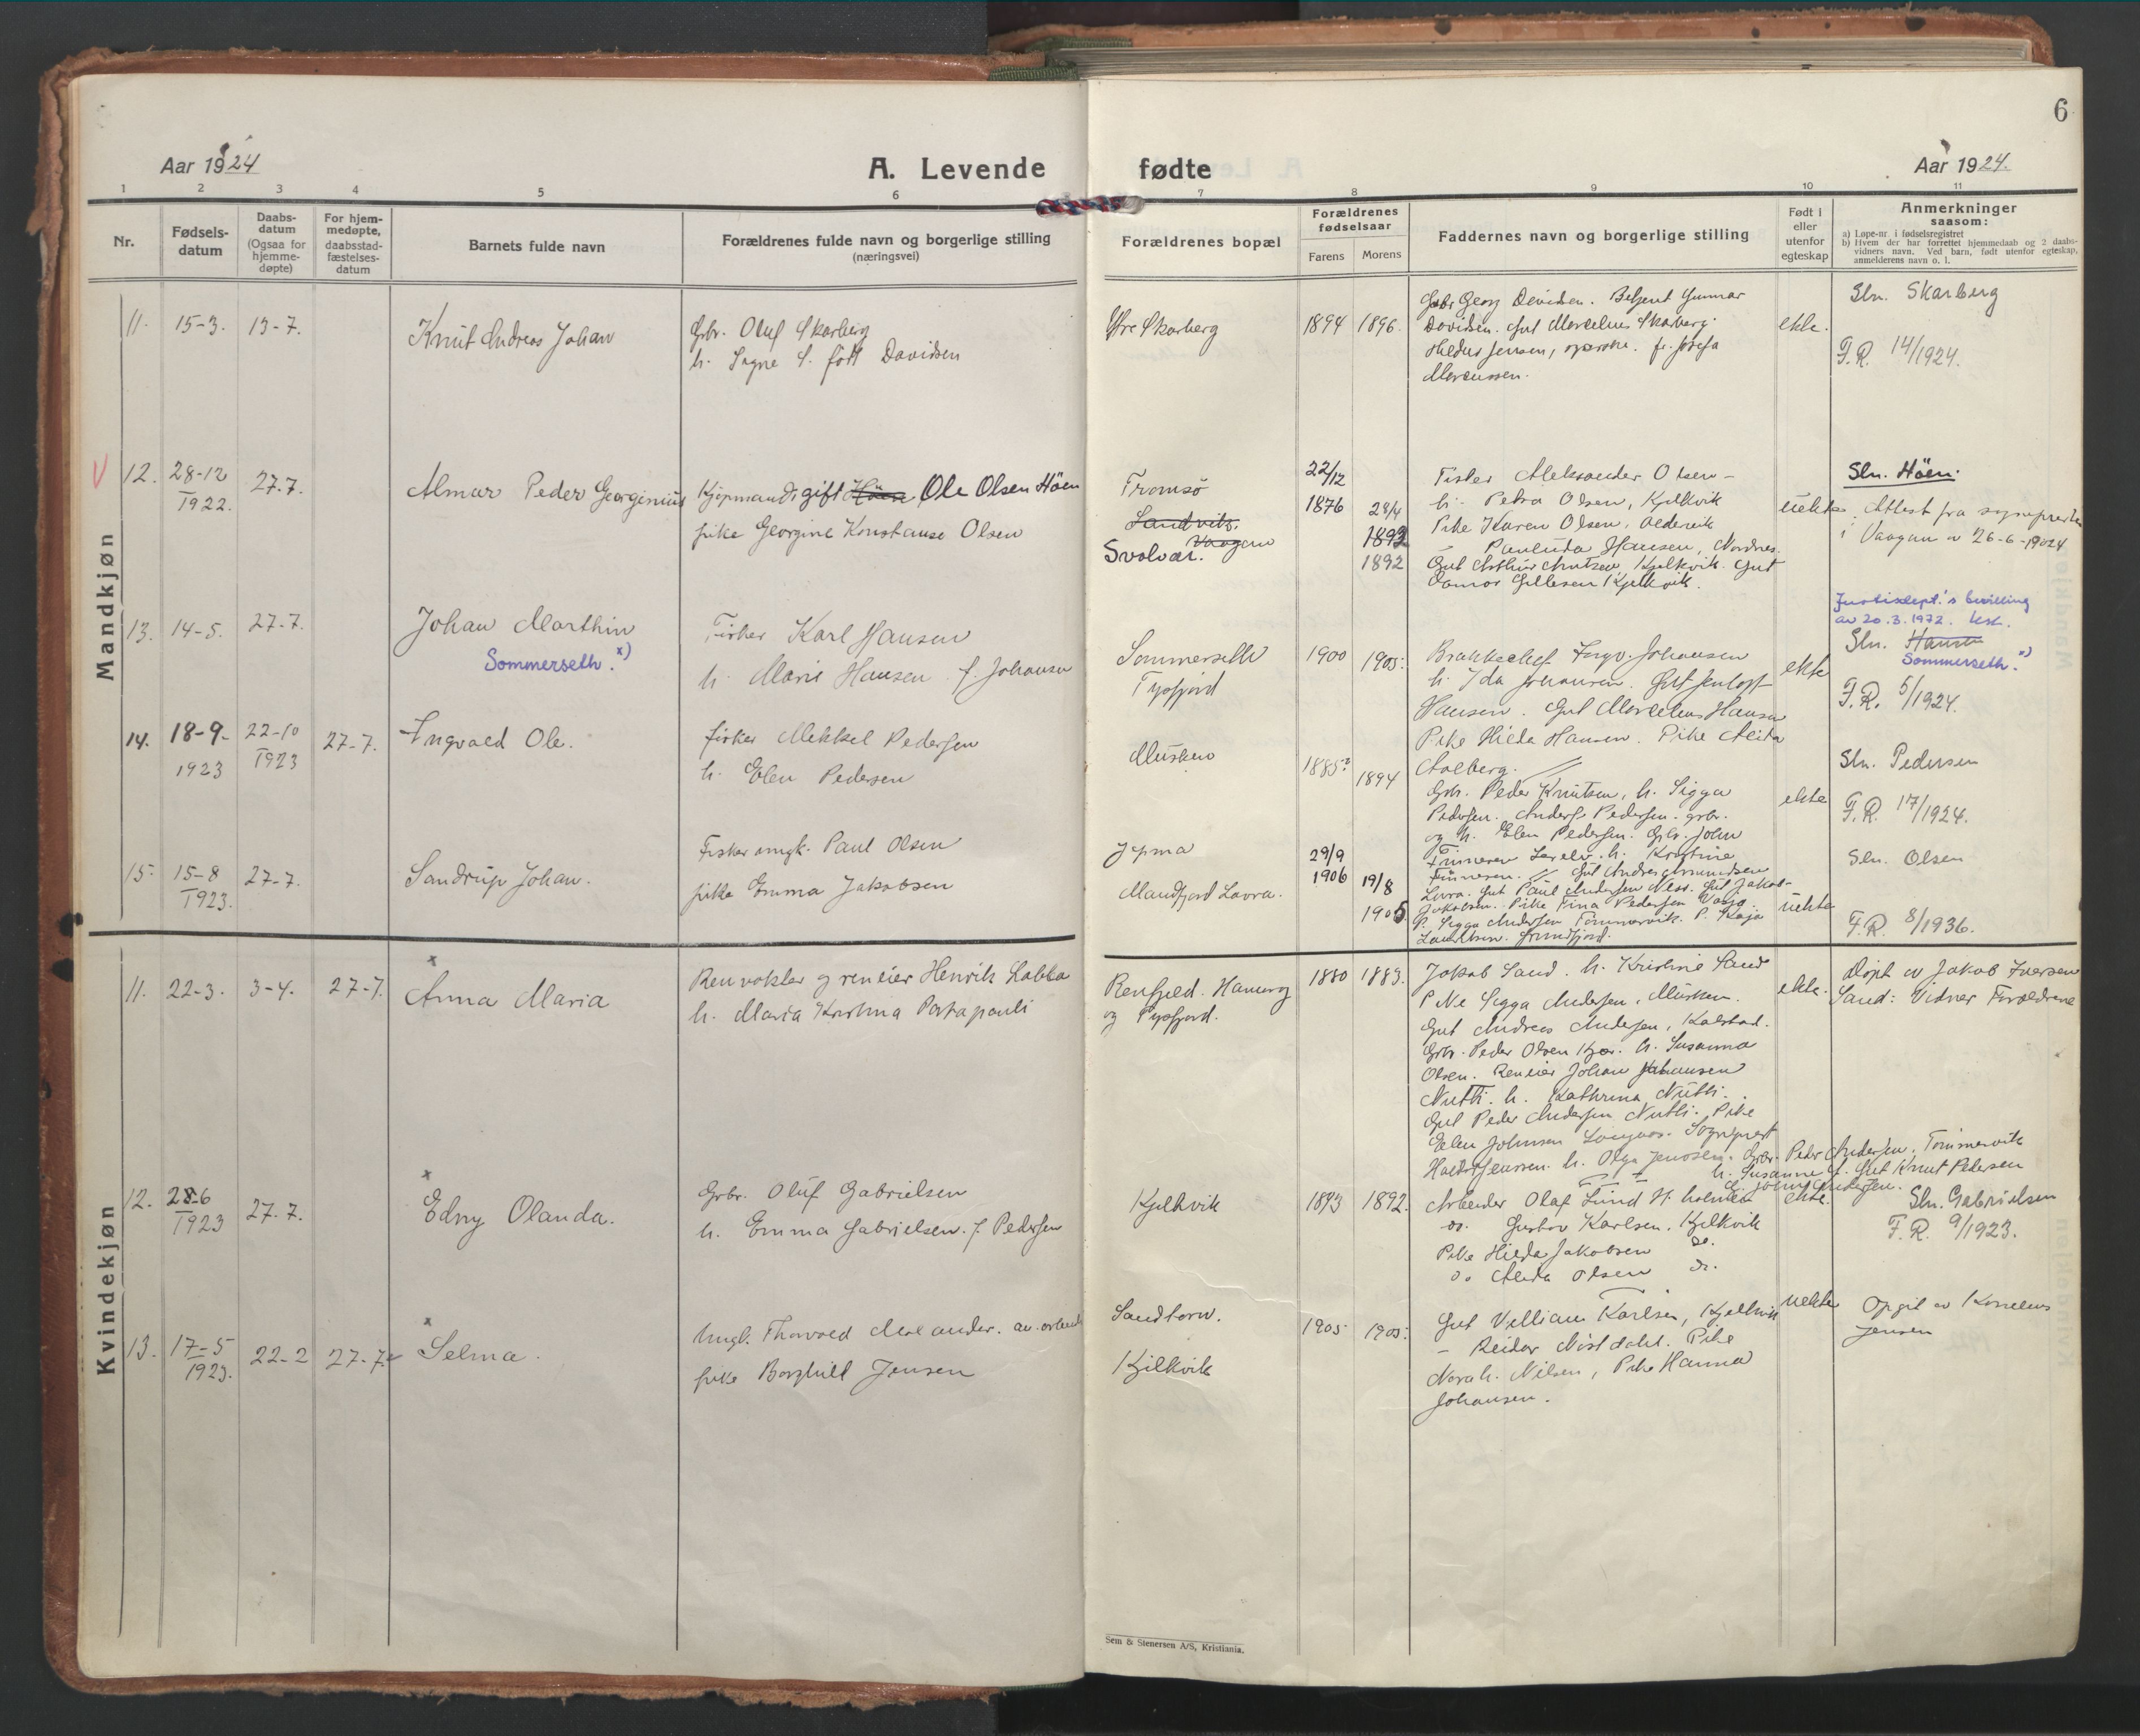 6
Aar 1924
A. Levende
fødte
Aar 1924.
1 2 3 4 5 6 7 8 9 10 11
Nr.
Fødsels-
datum
Daabs-
datum
(Ogsaa for
hjemme-
døpte)
For hjem-
medøpte,
daabsstad-
fæstelses-
datum
Barnets fulde navn
Forældrenes fulde navn og borgerlige stilling
(næringsvei)
Forældrenes bopæl
Forældrenes
fødselsaar
Farens Morens
Faddernes navn og borgerlige stilling
Født i
eller
utenfor
egteskap
Anmerkninger
saasom:
a) Løpe-nr. i fødselsregistret
b) Hvem der har forrettet hjemmedaab og 2 daabs-
vidners navn. Ved barn, født utenfor egteskap,
anmelderens navn o. l.
Mandkjøn
11. 15-3. 13-7.
Knut Andreas Johan
Grb. Oluf Skarberg
h. Signe S. født Davidsen
Ytre Skarberg
1894 1896.
Grbr Georg Davidsen. Betjent Gunnar
Davidsen. Gut Marcelius Skarberg.
Jensen,
Marcussen.
ekte.
Sln. Skarberg
F.R. 14/1924.
12. 28-12
1922.
27.7.
Almar Peder Georginius
Kjøpmand gift Höen Ole Olsen Höen
pike Georgine Konstanse Olsen
Tromsø
Sandvik.
Vaagan
Svolvær.
22/12
1876
28/4
1893
1892
Fisker Aleksander Olsen -
h. Petra Olsen, Kjelkvik
Pike Karen Olsen,
Paulida Hansen, Nordnes.
Gut Arthur Knutsen, Kjelkvik. Gut
Kjelkvik.
uekte
Sln. Höen.
Attest fra sognepresten
i Vaagan av 26-6-1924
13. 14-5. 27-7.
Johan Marthin
Sommerseth. x)
Fisker Karl Hansen
h. Marie Hansen f. Johansen
Sommerseth
Tysfjord
1900 1905.
Ingv. Johansen
h. Ida Johansen. Gut
Hansen. Gut Marcelius Hansen
Pike Hilda Hansen. Pike Alida
Aalberg.
ekte
Justisdept.'s bevilling
av 20.3.1972.
Sln. Hansen
Sommerseth. x)
F.R. 5/1924.
14. 18-9-
1923
22-10
1923
27-7.
Ingvald Ole.
fisker Mekkel Pedersen
h. Elen Pedersen
Musken
1885? 1894
Grb. Peder Knutsen, h. Sigga
Pedersen. Anders Pedersen. grbr.
og h. Elen Pedersen. Grb. John
h. Kristine
ekte
Sln. Pedersen
F.R. 17/1924.
15. 15-8
1923.
27-7.
Sandrup Johan.
Fisker ungk. Paul Olsen
pike Emma Jakobsen
Jepma
Mandfjord Lavra.
29/9
1906
19/8
1905
Gut Andreas Amundsen
Lavra. Gut Paul Andersen Ness. Gut Jakob
Jakobsen. Pike Fina Pedersen
P. Sigga Andersen Tömmervik. P. Kaja
Grundfjord.
uekte
Sln. Olsen
F.R. 8/1936.
Kvindekjøn
11. 22-3. 3-4. 27-7.
x
Anna Maria
Renvokter og reneier Henrik Labba
h. Maria Kristina Partapauli
Renfjeld. Hamarøy
og Tysfjord.
1880 1883.
Jakob Sand. h. Kristine Sand
Pike Sigga Andersen, Musken.
Gut Andreas Andersen, Kalstad.
Grb. Peder Olsen Kjær. h. Susanna
Olsen. Reneier Johan Johansen
Nutti. h. Kathrina Nutti.
Gut Peder Andersen Nutti. Pike
Elen Johnsen Sogneprest
Jenssen. h. Olga Jenssen. Grbr. Peder Andersen, Tömmervik
h. Susanne A. Gut Knut Pedersen
ekte.
Döpt av Jakob Iversen
Sand: Vidner Forældrene
12. 28-6
1923
27.7.
x
Edny Olanda.
Grbr. Oluf Gabrielsen
h. Emma Gabrielsen. f. Pedersen
Kjelkvik
1893 1892.
Arbeider Olaf Lund
do. Gustav Karlsen, Kjelkvik
Pike Hilda Jakobsen do.
do Alida Olsen do.
ekte.
Sln. Gabrielsen
F.R. 9/1923.
13. 17-5
1923.
22-2 27-7.
x
Selma.
Ungk. Thorvald
pike Borghild Jensen
Sandtorv.
Kjelkvik
1905 1905.
Gut Villiam Karlsen, Kjelkvik
- Reidar Pike
Nora h. Nilsen, Pike Hanna
Johansen.
uekte
Opgit av Kornelius
Jensen
Sem & Stenersen A/S, Kristiania.